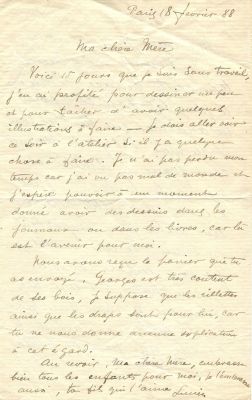 Paris 18 février 88
Ma chère Mère
Voici 15 jours que je suis sans travail,
j'en ai profité pour dessiner un peu
et pour tâcher d'avoir quelques
illustrations à faire — Je dois aller voir
ce soir à l'atelier s'il y a quelque
chose à faire. Je n'ai pas perdu mon
temps car j'ai vu pas mal de monde et
j'espère pouvoir à un moment
donné avoir des dessins dans les
journaux ou dans les livres, car là
est l'avenir pour moi.
Nous avons reçu le panier que tu
as envoyé. Georges est très content
de ses bas, je suppose que les rillettes
ainsi que les draps sont pour lui, car
tu ne nous donne aucune explication
à cet égard.
Au revoir Ma chère Mère, embrasse
bien tous les enfants pour moi, je t'embrasse
aussi, ton fils qui t'aime